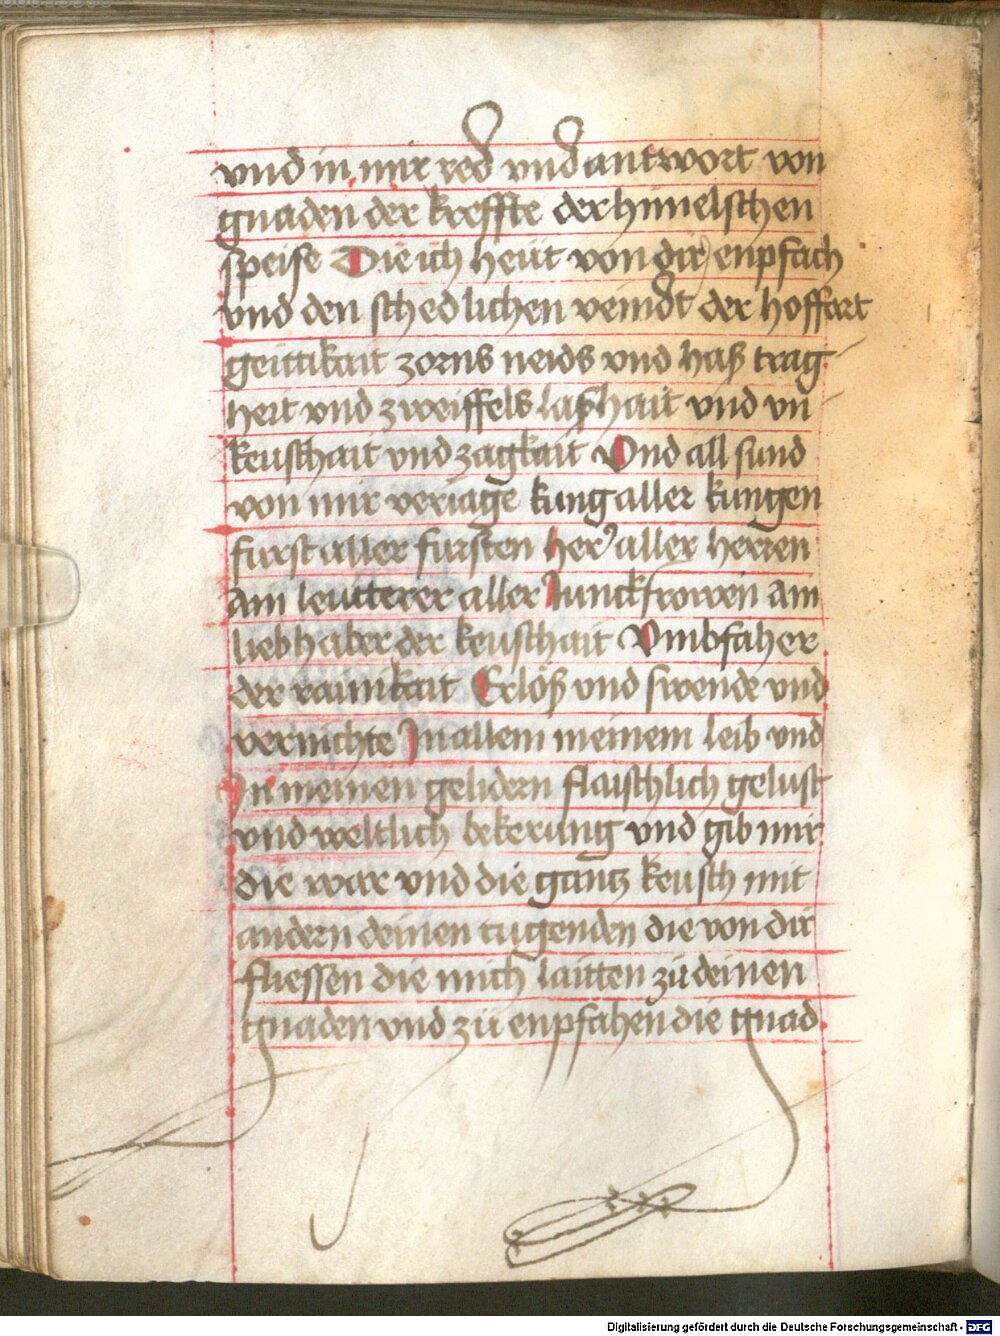 vnd in mir red vnd antwort von
gnaden der kreffte der himelschen
speise Die ich heüt von dir enpfach
vnd den schedlichen veindt der hoffart
geittikait zorns neids vnd haß trag-
hert vnd zweiffels laßhait vnd vn-
keuschait vnd zagkait Vnd all sund
von mir veriage kung aller kungen
furst aller fursten her aller herren
Am leutterer aller Junckfrowen am
liebhaber der keuschait Vmbfaher
der rainikait Erlöß vnd swende vnd
vernichte In allem meinem leib vnd
In meinen gelidern flaischlich gelust
vnd weltlich bekerung vnd gib mir
die war vnd die gantz keusch mit
andern deinen tugenden die von dir
fliessen die mich laitten zü deinen
gnaden vnd zü enpfahen die gnad
Digitalisierung gefördert durch die Deutsche Forschungsgemeinschaft - DFG